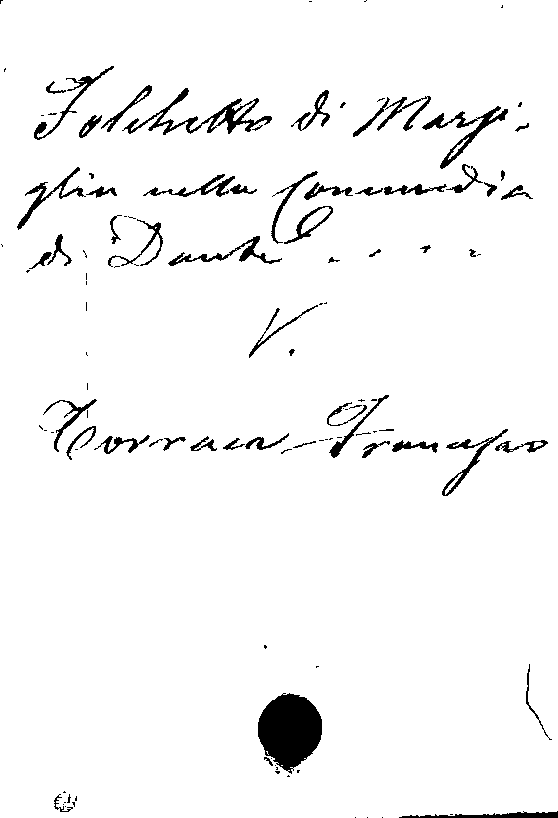 Folchetto di Marsi-
glia nella Commedia
di Dante . . . .
V.
Torraca Francesco